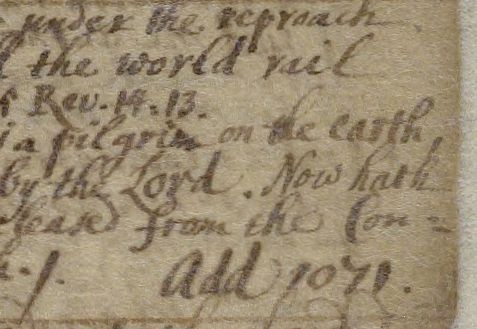 under the reproach
the world rail
Rev. 14. 13.
a pilgrim on the earth,
by the Lord. Now hath
from the Con=
Add 1071.